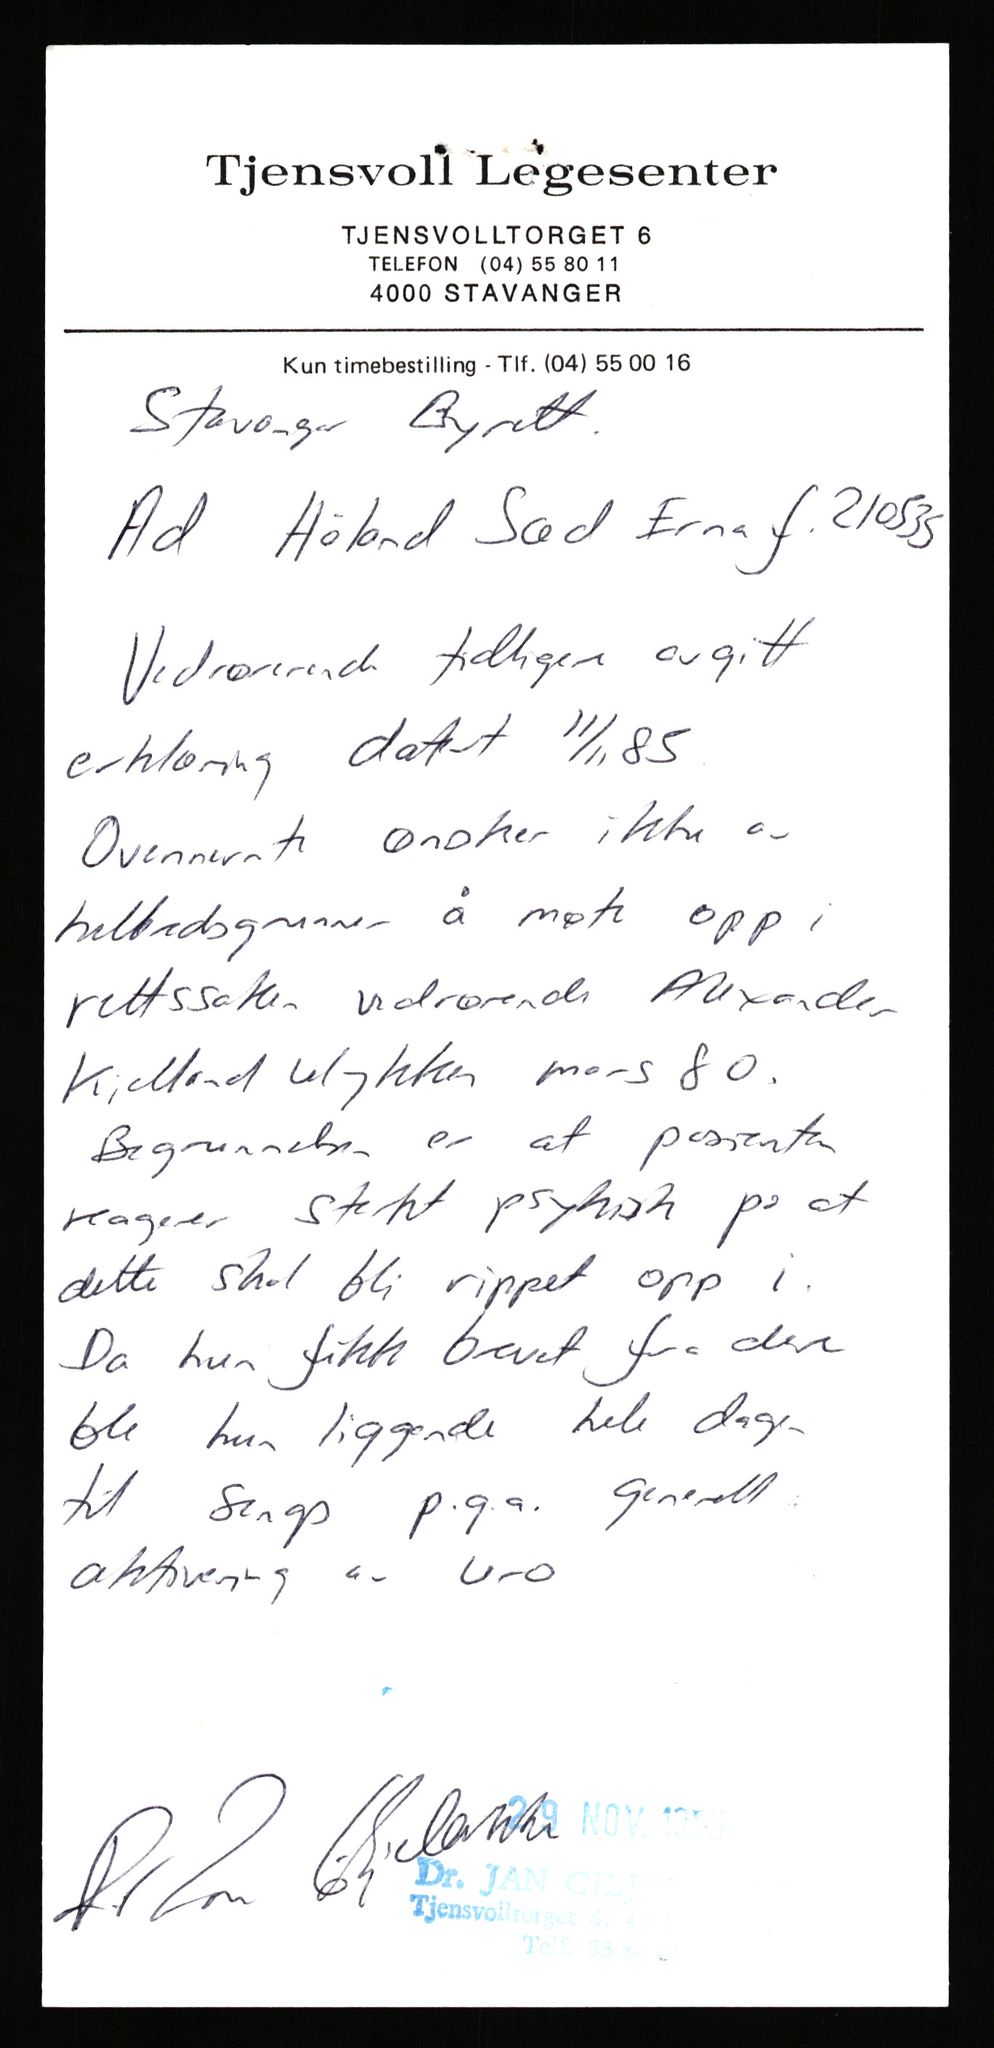 Tjensvoll Legesenter
TJENSVOLLTORGET 6
TELEFON (04) 55 80 11
4000 STAVANGER
Kun timebestilling - Tlf. (04) 55 00 16
Stavanger Byrett.
Ad Håland Sæd Erna f. 210535
Vedrørende tidligere avgitt
erklæring datert 11/11 85
Ovennevnte ønsker ikke av
helbredsgrunner å møte opp i
rettssaken vedrørende Alexander
Kjelland ulykken mars 80.
Begrunnelsen er at pasienten
reagerer sterkt psykisk på at
dette skal bli rippet opp i.
Da hun fikk brevet fra dere
ble hun liggende hele dagen
til sengs p.g.a. generell
aktivering av uro
29 NOV.
Dr. JAN
Tjensvolltorget 4.
Telf. 55